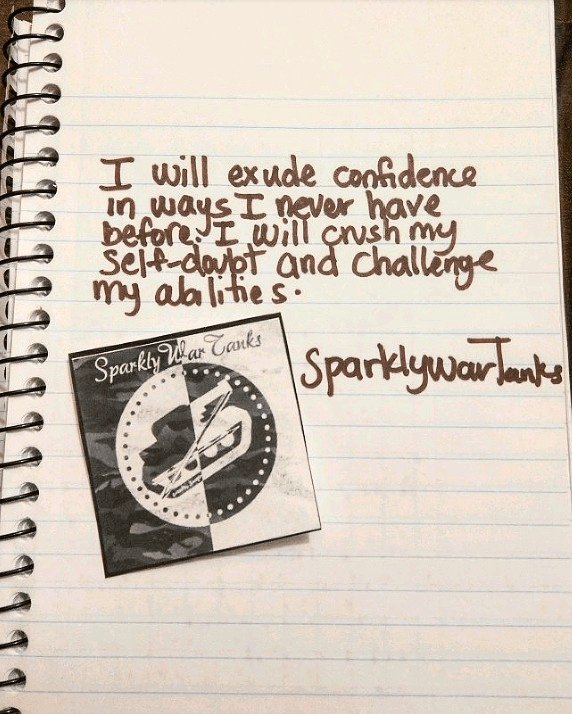 I will exude confidence
in ways I never have
before. I will crush my
self-doubt and challenge
my abilities.
Sparkly War Tanks
SparklywarTanks